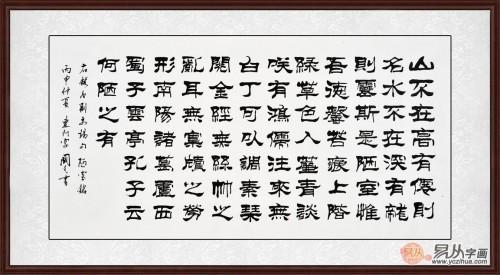 山不在高有僊則
名水不在深有龍
則靈斯是陋室惟
吾德馨苔痕上階
綠草色入簾青談
咲有鴻儒往來無
白丁可以調素琴
閱金經無絲竹之
亂耳無案牘之勞
形南陽諸葛廬西
蜀子雲亭孔子云
何陋之有
右錄唐劉禹錫陋室銘
丙申仲夏書
易从
易从字画
www.yczihua.com